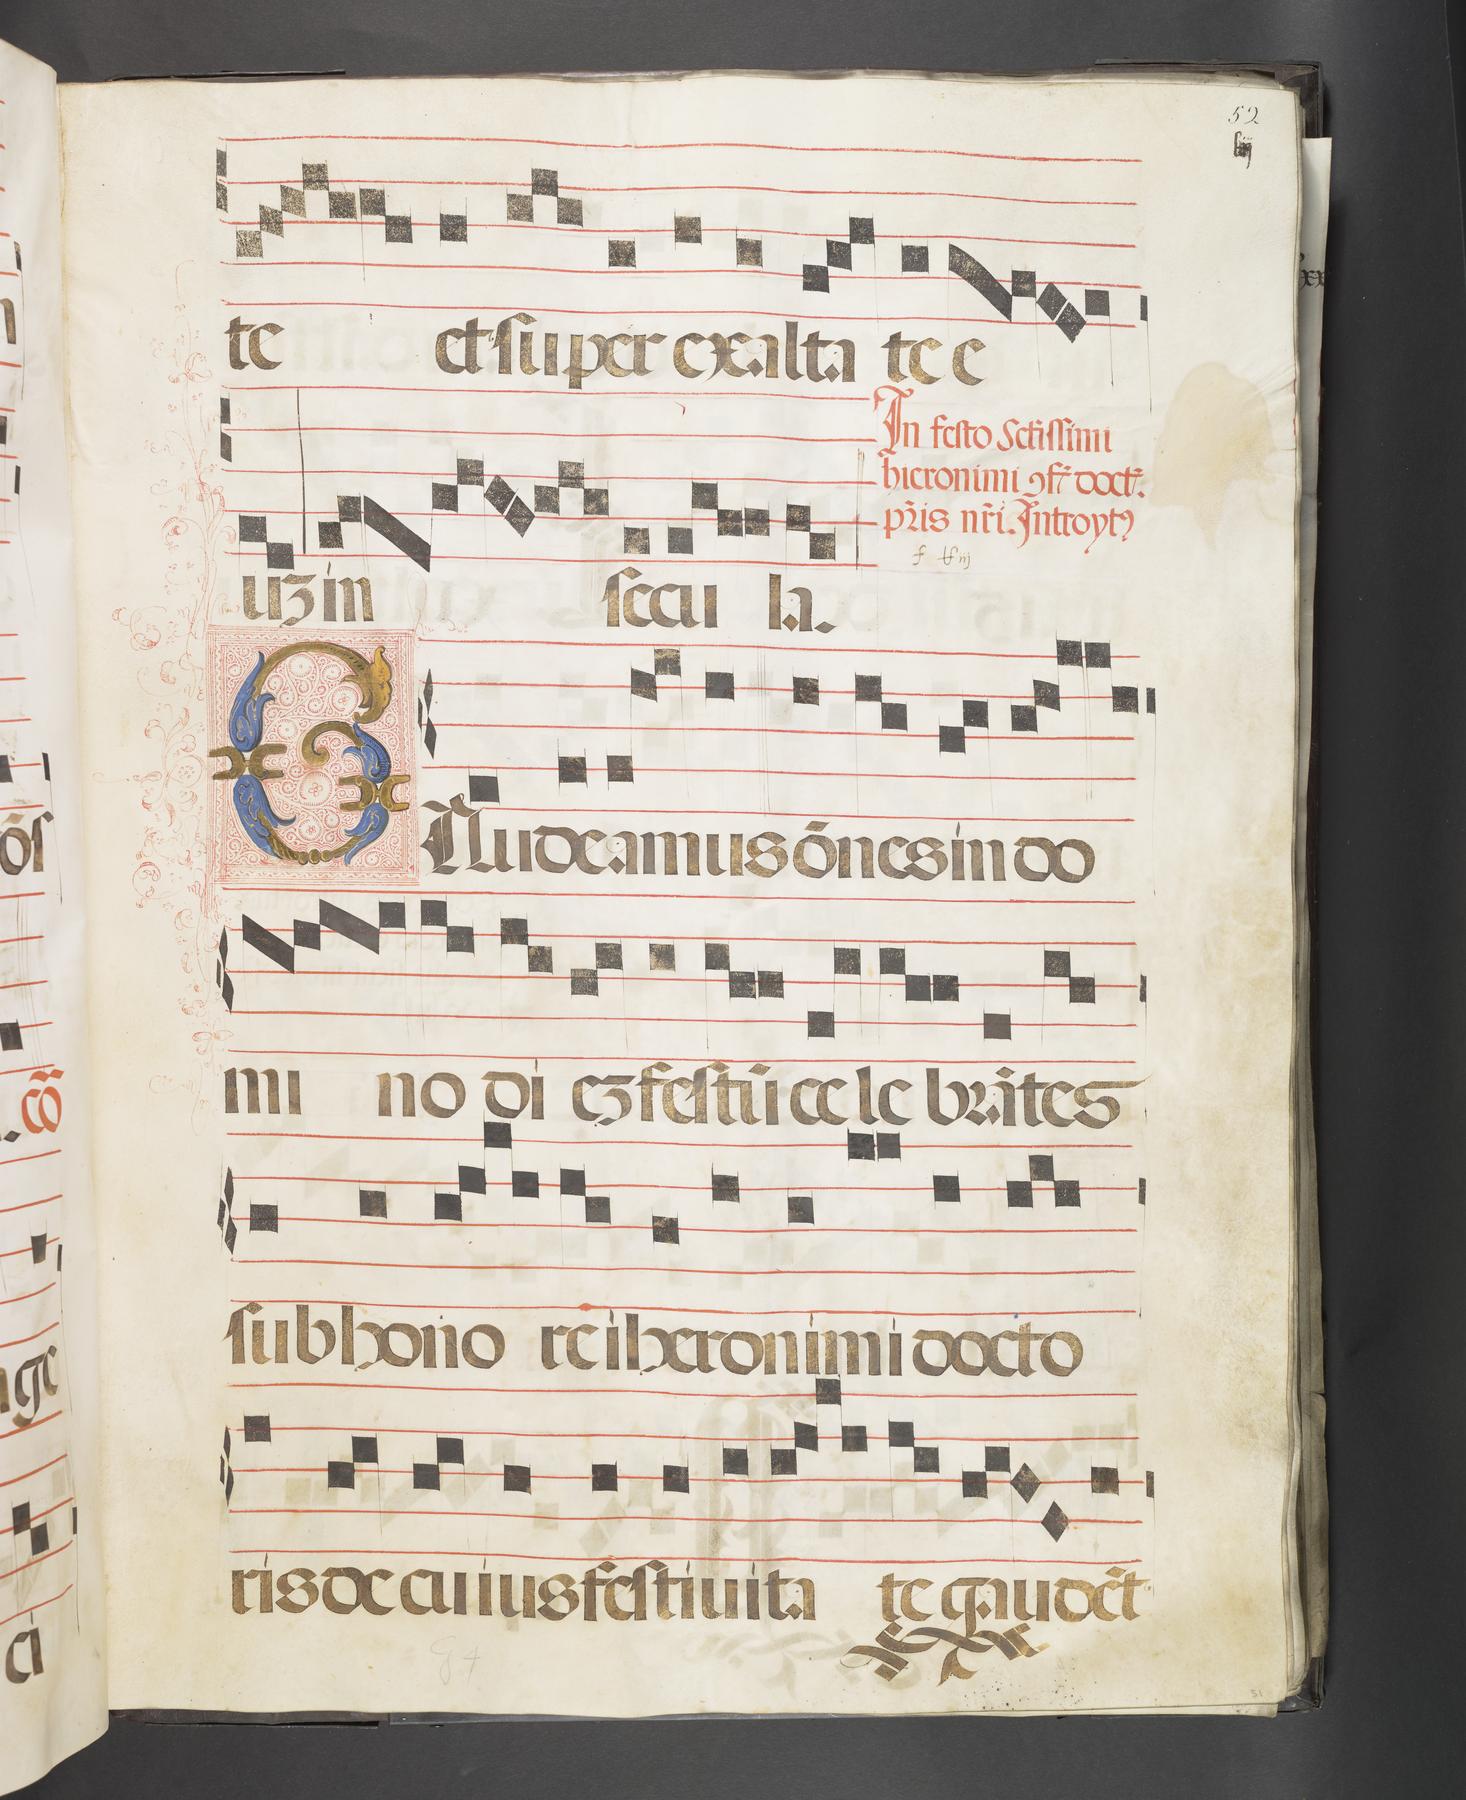 52
te et super exalta te e
In festo Sctissimi
hieronimi ɔfr̃ doct̃.
pr̃is nr̃i. Introytꝰ
uʒ in secu la.
GAudeamus õnes in do
mi no di eʒ festũ ce le brãtes
sub hono re iheronimi docto
ris de cuius festiuita te gaudẽt